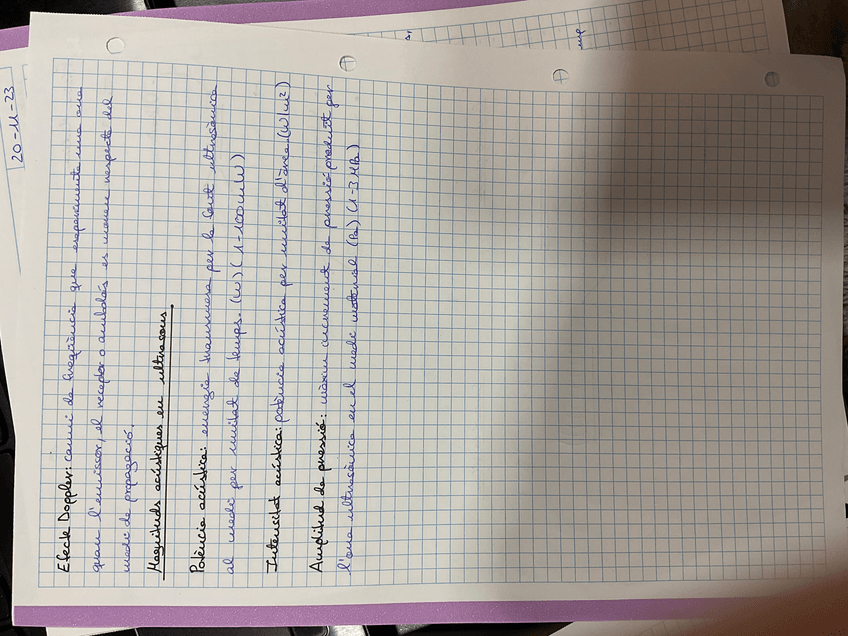 20-11-23
Efecte Doppler: canvi de freqüència que experimenta una ona
quan l'emissor, el receptor o ambdós es mouen respecte del
medi de propagació.
Magnituds acústiques en ultrasons.
Potència acústica: energia transmesa per la font ultrasònica
al medi per unitat de temps. (W) (1-100mW)
Intensitat acústica: potència acústica per unitat d'àrea. (W/m²)
Amplitud de pressió: màxim increment de pressió produït per
l'ona ultrasònica en el medi material (Pa) (1-3 MPa)